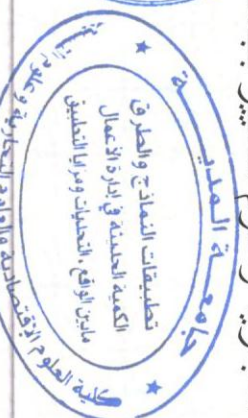 جامعة المديــة
تطبيقات النماذج والطرق
الكمية الحديثة في إدارة الأعمال
مابين الواقع، التحديات ومزايا التطبيق
كلية العلوم الإقتصادية والعلوم التجارية وعلوم